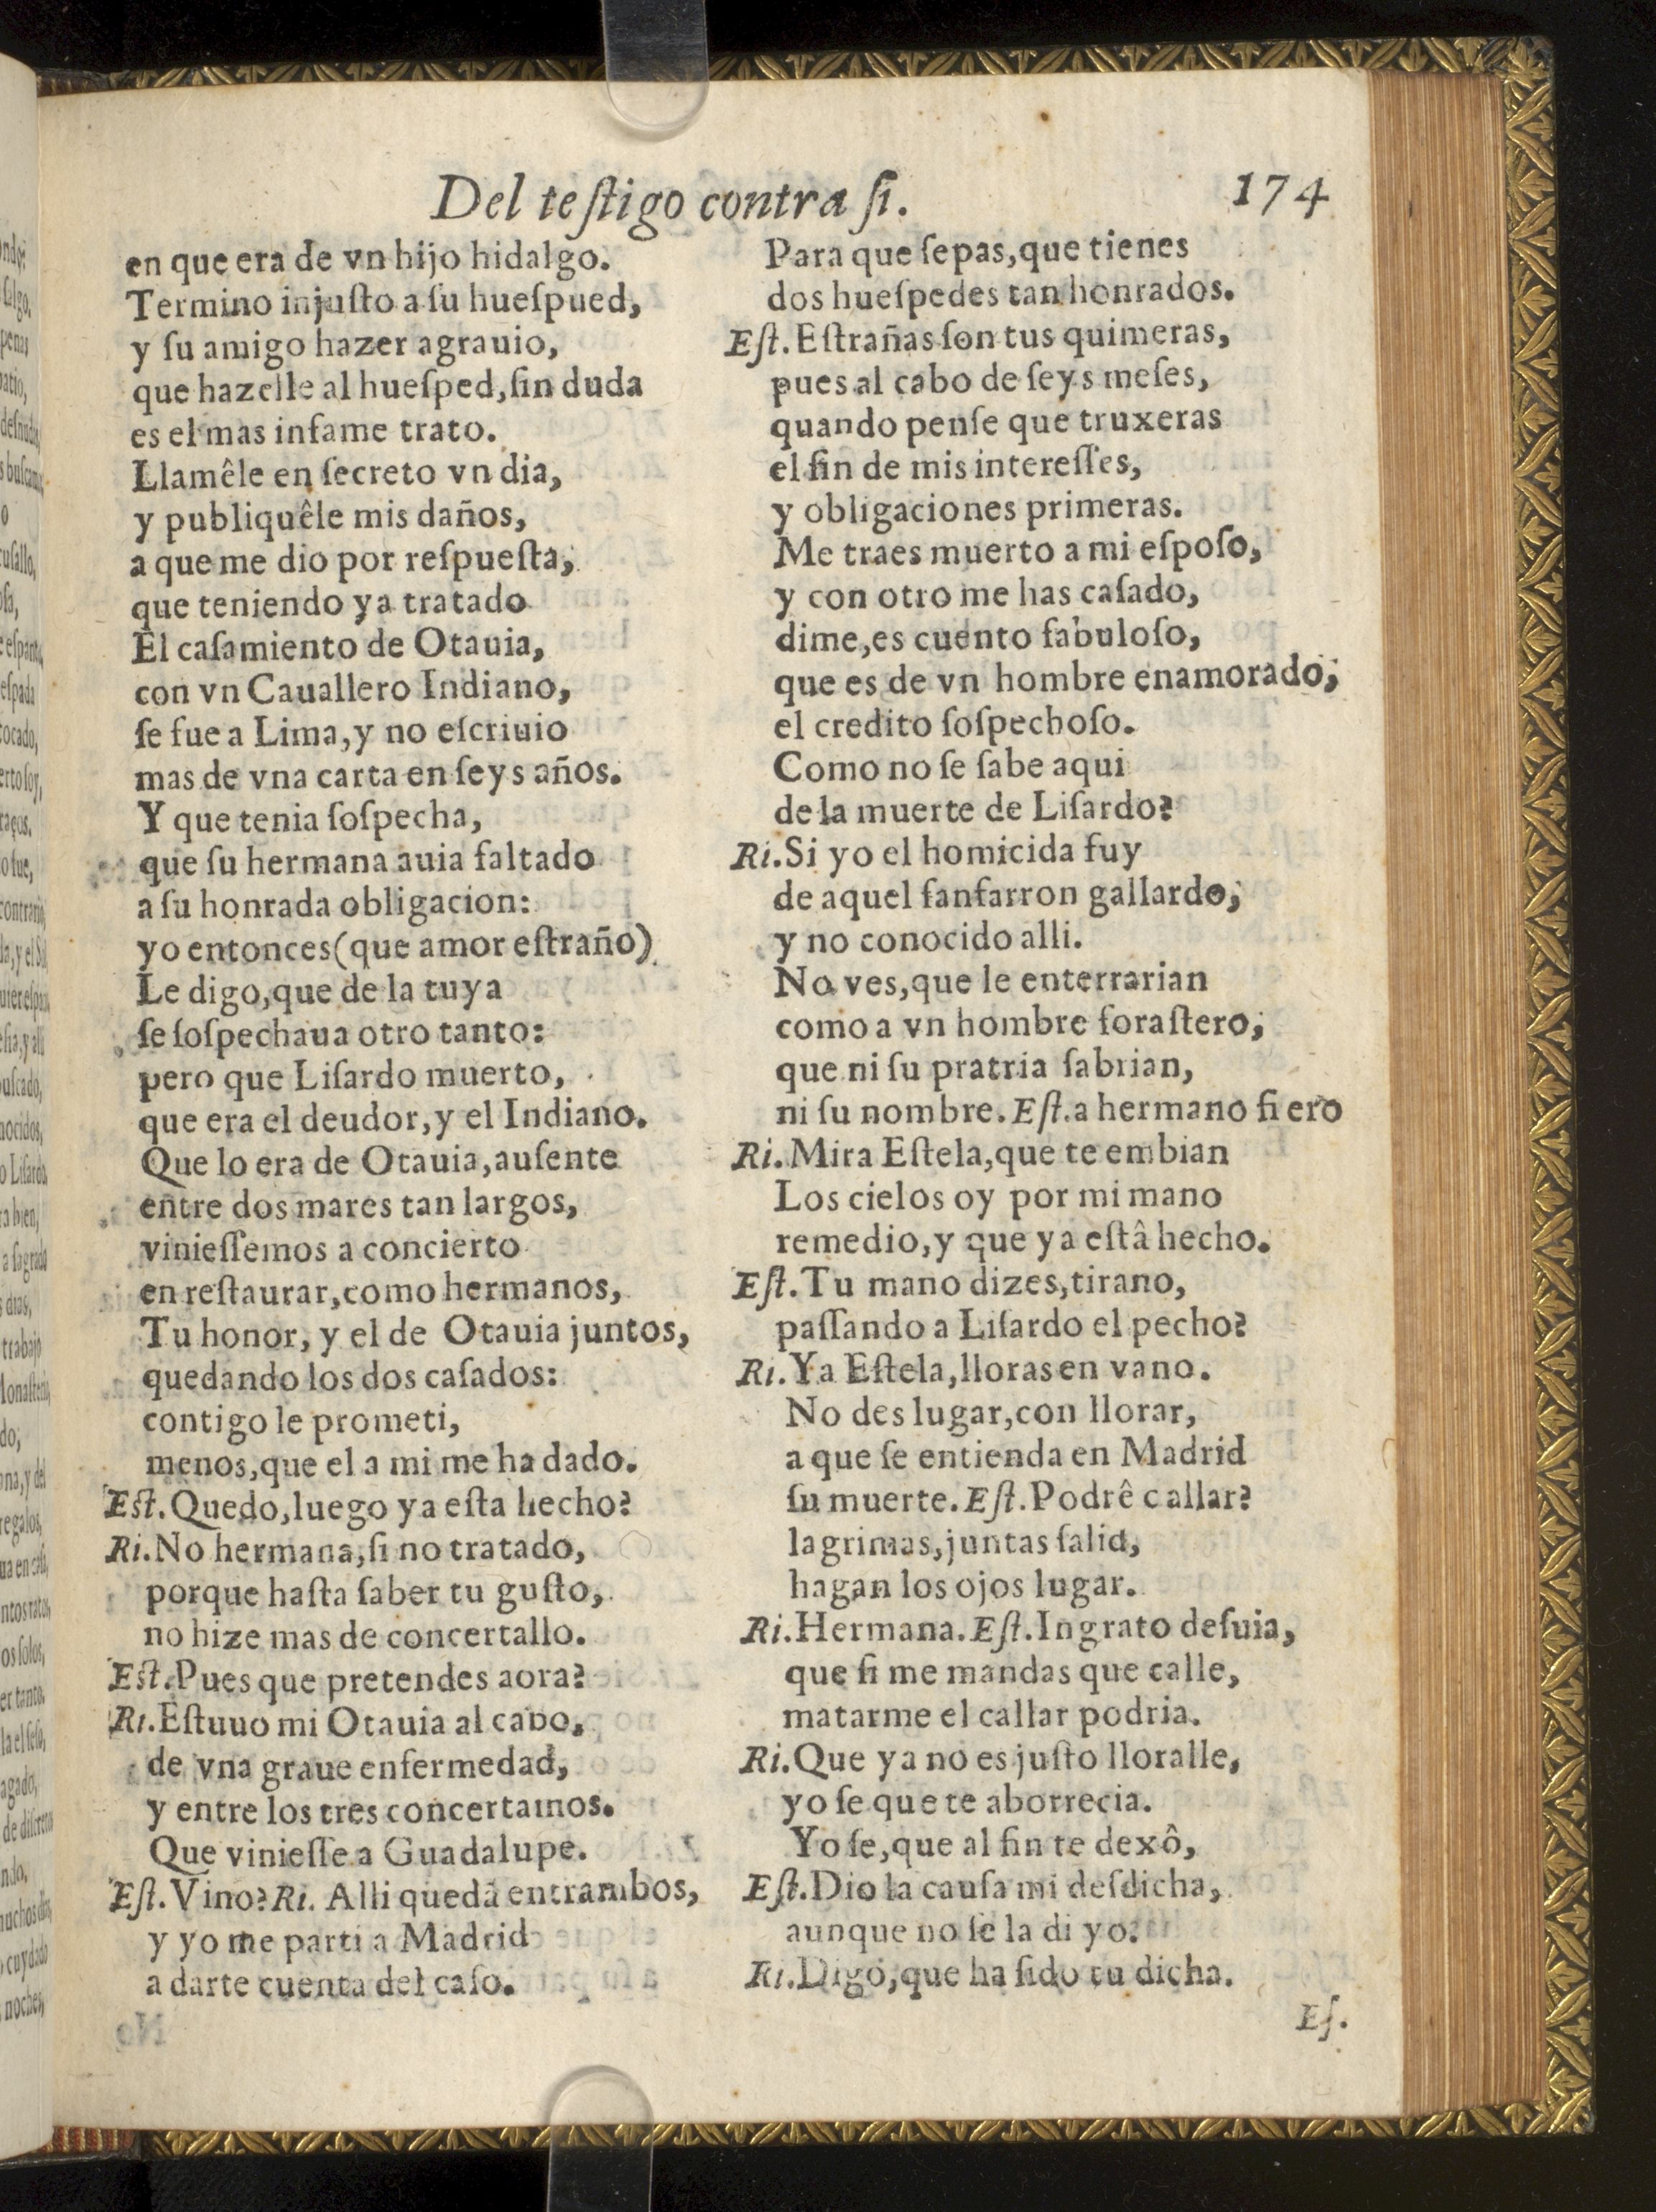 Del teſtigo contra ſi.
174
en que era de vn hijo hidalgo.
Termino injuſto a ſu hueſpued,
y ſu amigo hazer agrauio,
que hazelle al hueſped, ſin duda
es el mas infame trato.
Llamêle en ſecreto vn dia,
y publiquêle mis daños,
a que me dio por reſpueſta,
que teniendo ya tratado
El caſamiento de Otauia,
con vn Cauallero Indiano,
ſe fue a Lima, y no eſcriuio
mas de vna carta en ſeys años.
Y que tenia ſoſpecha,
que ſu hermana auia faltado
a ſu honrada obligacion:
yo entonces (que amor eſtraño)
Le digo, que de la tuya
ſe ſoſpechaua otro tanto:
pero que Liſardo muerto,
que era el deudor, y el Indiano.
Que lo era de Otauia, auſente
entre dos mares tan largos,
vinieſſemos a concierto
en reſtaurar, como hermanos,
Tu honor, y el de Otauia juntos,
quedando los dos caſados:
contigo le prometi,
menos, que el a mi me ha dado.
Eſt. Quedo, luego ya eſta hecho?
Ri. No hermana, ſi no tratado,
porque haſta ſaber tu guſto,
no hize mas de concertallo.
Eſt. Pues que pretendes aora?
Ri. Eſtuuo mi Otauia al cabo,
de vna graue enfermedad,
y entre los tres concertamos.
Que vinieſſe a Guadalupe.
Eſt. Vino? Ri. Alli quedã entrambos,
y yo me parti a Madrid
a darte cuenta del caſo.
Para que ſepas, que tienes
dos hueſpedes tan honrados.
Eſt. Eſtrañas ſon tus quimeras,
pues al cabo de ſeys meſes,
quando penſe que truxeras
el fin de mis intereſſes,
y obligaciones primeras.
Me traes muerto a mi eſpoſo,
y con otro me has caſado,
dime, es cuento fabuloſo,
que es de vn hombre enamorado,
el credito ſoſpechoſo.
Como no ſe ſabe aqui
de la muerte de Liſardo?
Ri. Si yo el homicida fuy
de aquel fanfarron gallardo,
y no conocido alli.
No ves, que le enterrarian
como a vn hombre foraſtero,
que ni ſu pratria ſabrian,
ni ſu nombre. Eſt. a hermano fiero
Ri. Mira Eſtela, que te embian
Los cielos oy por mi mano
remedio, y que ya eſtâ hecho.
Eſt. Tu mano dizes, tirano,
paſſando a Liſardo el pecho?
Ri. Ya Eſtela, lloras en vano.
No des lugar, con llorar,
a que ſe entienda en Madrid
ſu muerte. Eſt. Podrê callar?
lagrimas, juntas ſalid,
hagan los ojos lugar.
Ri. Hermana. Eſt. Ingrato deſuia,
que ſi me mandas que calle,
matarme el callar podria.
Ri. Que ya no es juſto lloralle,
yo ſe que te aborrecia.
Yo ſe, que al fin te dexô,
Eſt. Dio la cauſa mi deſdicha,
aunque no ſe la di yo.
Ri. Digo, que ha ſido tu dicha.
Eſ.